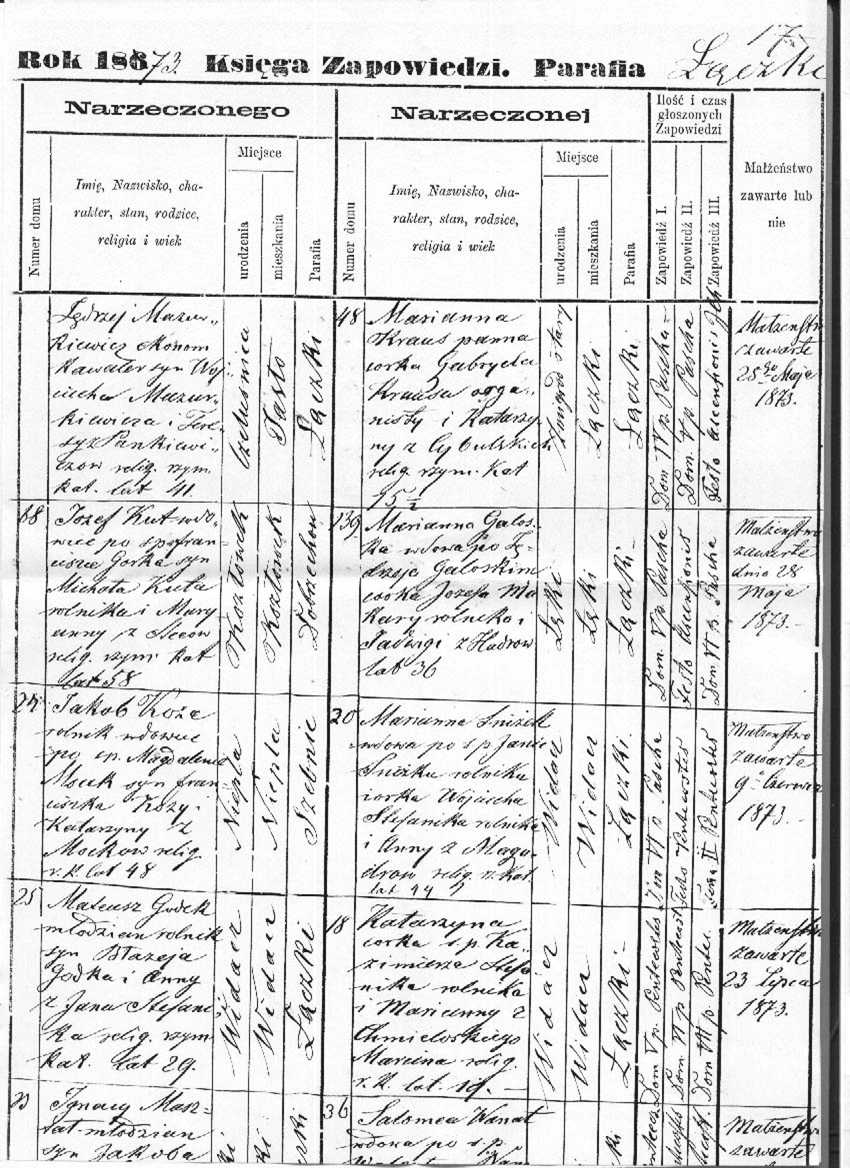 177
Rok 1867 73. Księga Zapowiedzi. Parafia Łączki
Narzeczonego
Narzeczonej
Ilość i czas
głoszonych
Zapowiedzi
Małżeństwo
zawarte lub
nie
Numer domu
Imię, Nazwisko, cha-
rakter, stan, rodzice,
religia i wiek
Miejsce
urodzenia
mieszkania
Parafia
Numer domu
Imię, Nazwisko, cha-
rakter, stan, rodzice,
religia i wiek
Miejsce
urodzenia
mieszkania
Parafia
Zapowiedź I.
Zapowiedź II.
Zapowiedź III.
Jędrzej Mazur-
kiewicz ekonom
kawaler syn Woj
ciecha Mazur-
kiewicza i Tere
sy z Pankiewi-
czow relig. rzym.
kat. lat 41.
Czeluśnica
Jasło
Łączki
48
Marianna
Kraus panna
corka Gabryela
Krausa orga-
nisty i Katarzy
ny z Cybulskich
relig. rzym. Kat
15 1/2
Żmigród stary
Łączki
Łączki
Dom IV p. Pascha
Dom. V p. Pascha
Festo Ascensionis
Małżeństw
zawarte
28go Maja
1873.
88
Jozef Kut wdo-
wiec po sp fran-
ciszce Gorka syn
Michała Kuta
rolnika i Mary
anny z Steców
relig. rzym kat
lat 58
Kozłówek
Kozłówek
Dobrzechow
139
Marianna Galos-
ka wdowa po Ję-
drzeju Galoskim
corka Jozefa Ma
kary rolnika i
Jadwigi z Hadrow
lat 36
Łęki
Łęki
Łączki
Dom. V p. Pascha
Festo Ascensionis
Dom VI p. Pascha
Małżeństwo
zawarte
dnia 28
Maja
1873.
24
Jakob Koza
rolnik wdowiec
po sp. Magdalenie
Msuk syn fran-
ciszka Kozy i
Katarzyny z
Mockow relig.
r. k. lat 48
Niepla
Niepla
Szebnie
20
Marianna Sniżek
wdowa po sp Janie
Sniżku rolnika
corka Wojciecha
Stefanika rolnika
i Anny z Magu-
drow relig. r. kat.
lat 44
Widacz
Widacz
Łączki.
Dom VI p. Pascha
Festo Pentecostes
Feria II Pentecostes
Małżeństwo
zawarte
9o Czerwca
1873.
25
Mateusz Godek
młodzian rolnik
syn Błażeja
Godka i Anny
z Jana Stefani
ka relig. rzym
kat. lat 29.
Widacz
Widacz
Łączki
18
Katarzyna
corka s p. Ka
zimierza Stefa
nika rolnika
i Marianny z
Chmielowskiego
Marcina relig
r. k. lat 19.
Widacz
Widacz
Łączki
Dom V p. Pentecostes
Dom VI p. Pentecost
Dom VII p. Pentec.
Małżeństw
zawarte
23 Lipca
1873.
Ignacy Masz-
młodzian
syn Jakoba
36
Salomea Wanat
wdowa po s. p.
Małżeństw
zawarte